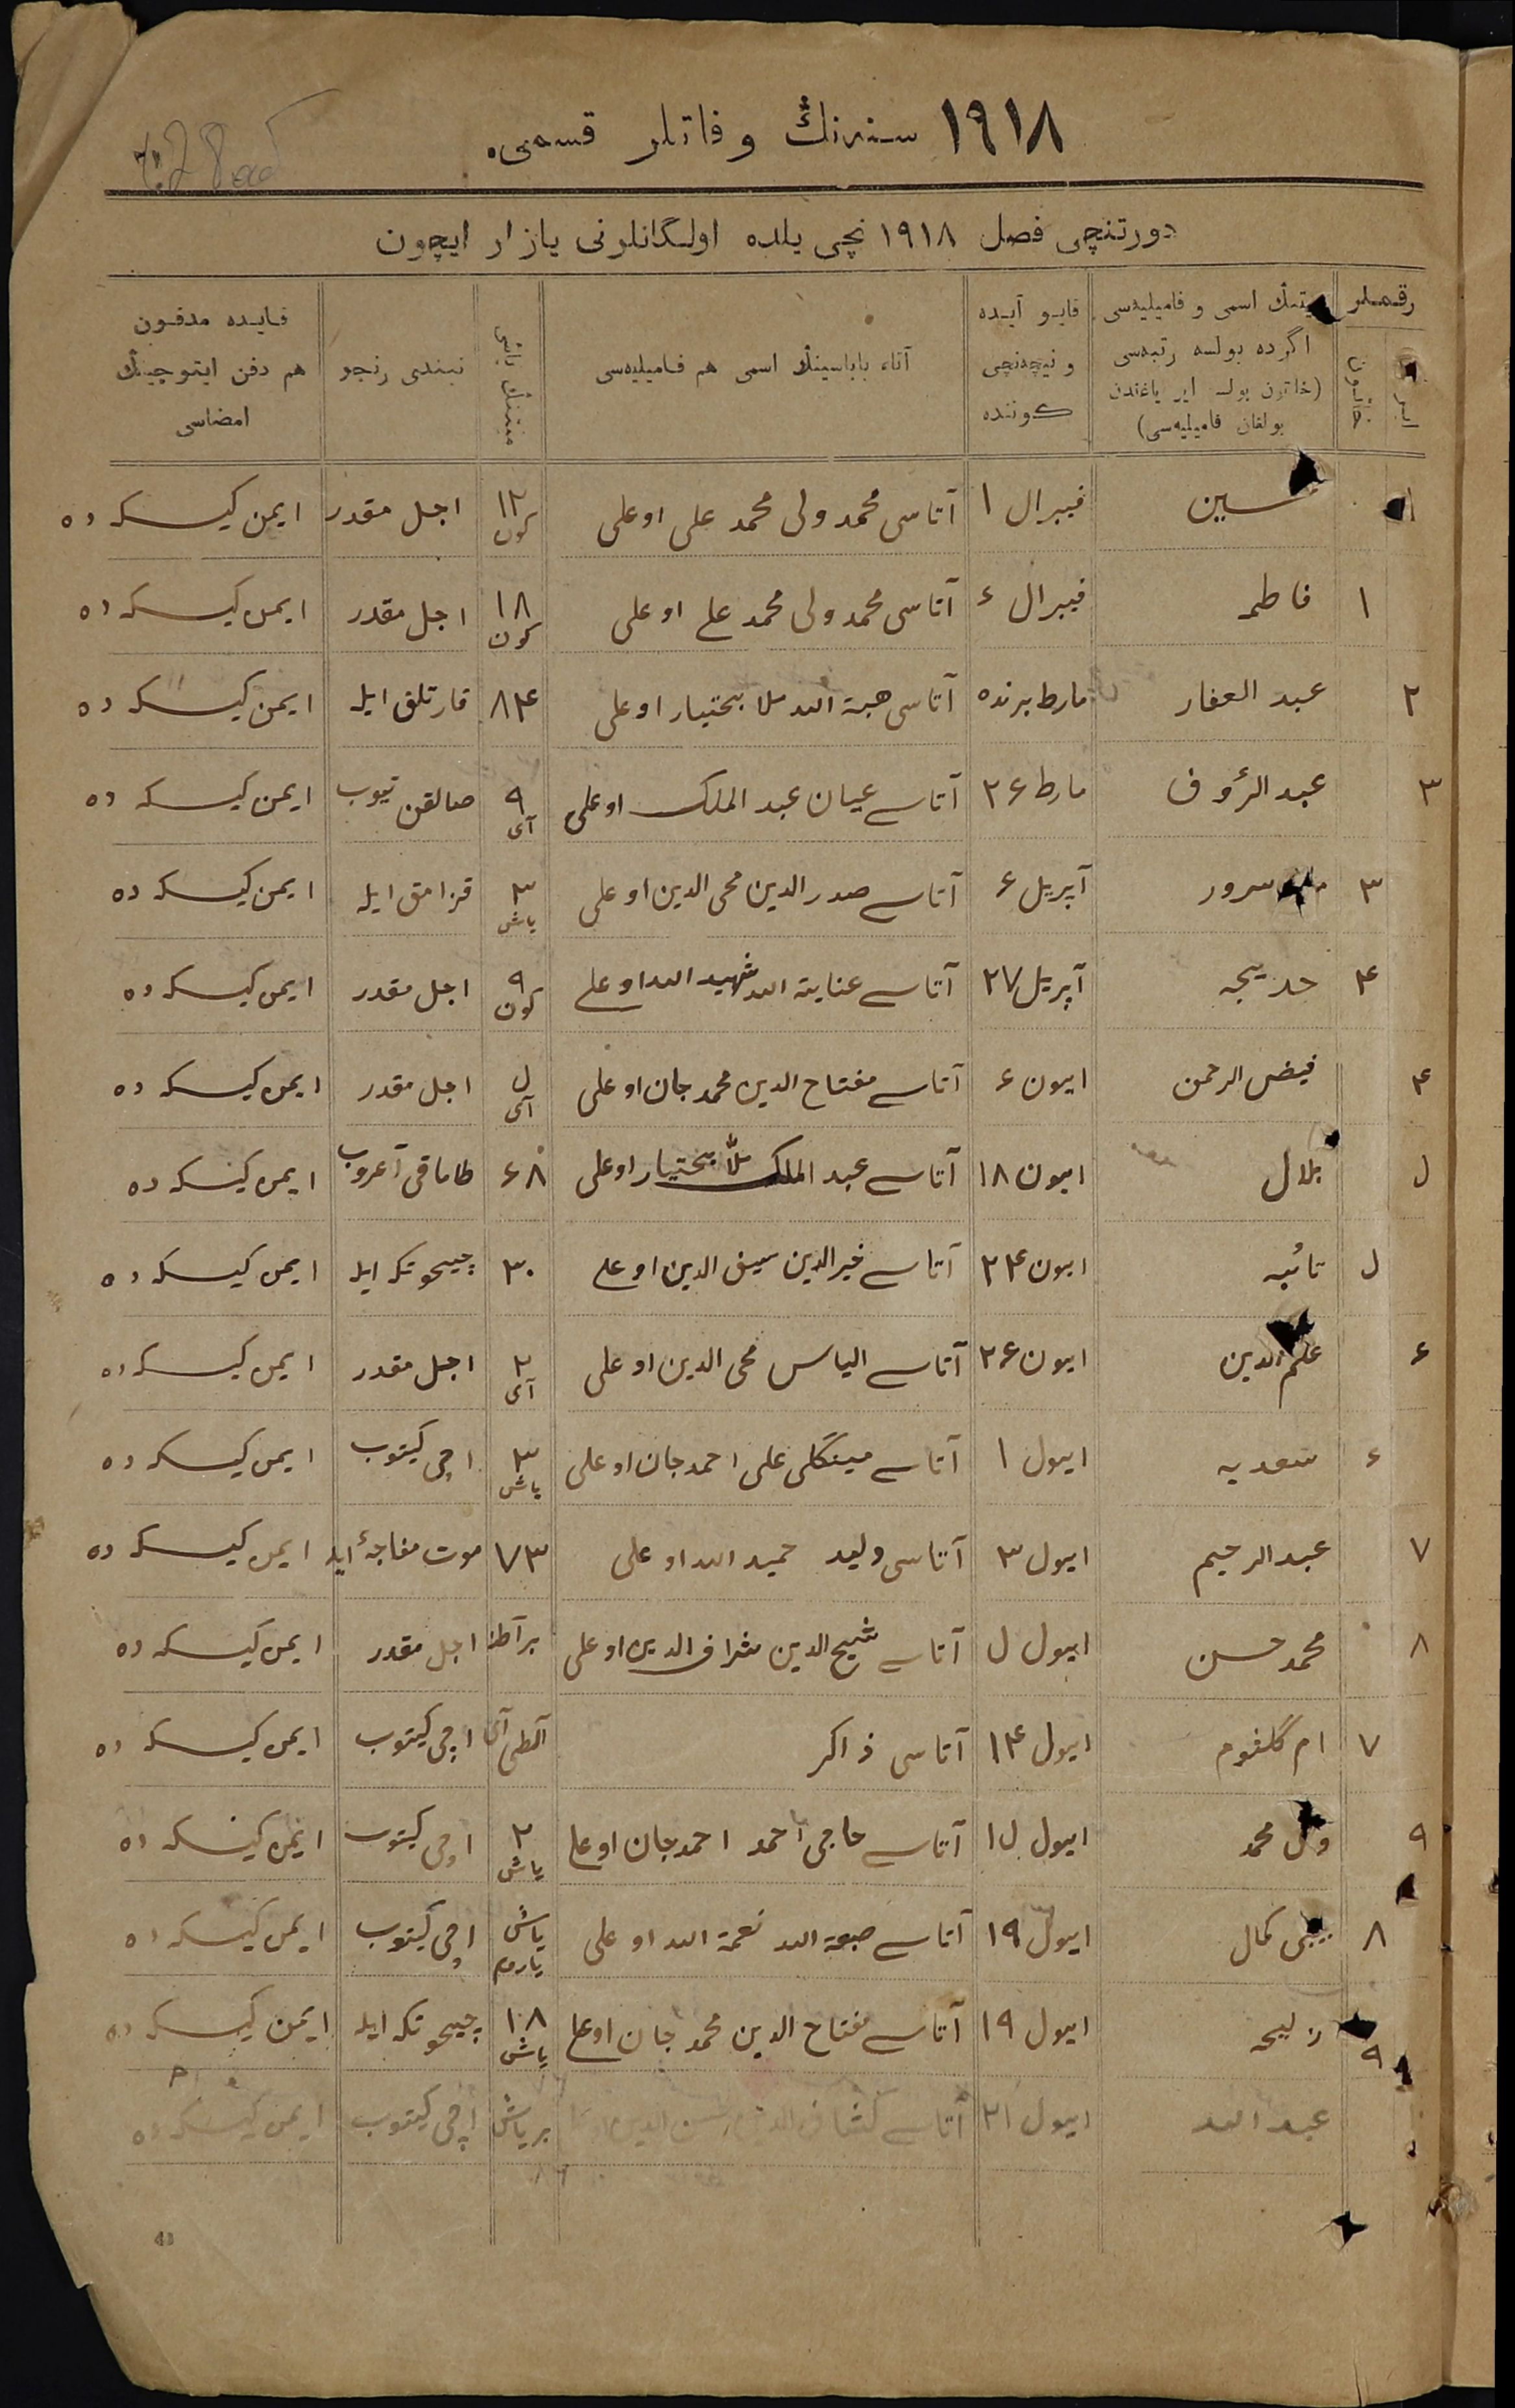 ١٩١٨ سنه‌نڭ وفاتلر قسمی.
دورتنچی فصل ١٩١٨ نچی یلده اولگانلرنی یازار ایچون
رقملر
اسمی و فامیلیه‌سی اگرده بولسه رتبه‌سی (خاتون بولسه ایر یاغندن بولغان فامیلیه‌سی)
قایو آیده و نیچه‌نچی کوننده
آتا، باباسینڭ اسمی هم فامیلیه‌سی
میتنڭ یاشی
نیندی رنجو
قایده مدفون هم دفن ایتوچینڭ امضاسی
فیبرال ١ آتاسی محمد ولی محمد علی اوغلی ١٢ کون اجل مقدر ایمن کیسکه ده
١ فاطمه فیبرال ۶ آتاسی محمد ولی محمد علی اوغلی ١٨ کون اجل مقدر ایمن کیسکه ده
٢ عبد الغفار مارط برنده آتاسی هبة الله ملا بختیار اوغلی ٨۴ قارتلق ایله ایمن کیسکه ده
٣ عبد الرؤف مارط ٢۶ آتاسی عیان عبد الملک اوغلی ٩ آی صالقن تیوب ایمن کیسکه ده
٣ سرور آپریل ۶ آتاسی صدر الدین محی الدین اوغلی ٣ یاش قزامق ایله ایمن کیسکه ده
۴ خدیجه آپریل ٢٧ آتاسی عنایة الله شهید الله اوغلی ٩ کون اجل مقدر ایمن کیسکه ده
۴ فیض الرحمن ایون ۶ آتاسی مفتاح الدین محمد جان اوغلی ل آی اجل مقدر ایمن کیسکه ده
ل بلال ایون ١٨ آتاسی عبد الملک ملا بختیار اوغلی ۶٨ طاماقی آغروب ایمن کیسکه ده
ل تائبه ایون ٢۴ آتاسی خیر الدین سیف الدین اوغلی ٣٠ چیحوتکه ایله ایمن کیسکه ده
۶ علم الدین ایون ٢۶ آتاسی الیاس محی الدین اوغلی ٢ آی اجل مقدر ایمن کیسکه ده
۶ سعدیه ایول ١ آتاسی مینگلی علی احمد جان اوغلی ٣ یاش اچی کیتوب ایمن کیسکه ده
٧ عبد الرحیم ایول ٣ آتاسی ولید حمید الله اوغلی ٧٣ موت مفاجۀ ایله ایمن کیسکه ده
٨ محمد حسن ایول ل آتاسی شیخ الدین شراف الدین اوغلی برآطنه اجل مقدر ایمن کیسکه ده
٧ ام گلثوم ایول ١۴ آتاسی ذاکر آلطی آی اچی کیتوب ایمن کیسکه ده
٩ محمد ایول ١ل آتاسی حاجی احمد احمد جان اوغلی ٢ یاش اچی کیتوب ایمن کیسکه ده
٨ بیبی کمال ایول ١٩ آتاسی صبغة الله نعمة الله اوغلی یاش یاروم اچی کیتوب ایمن کیسکه ده
٩ زلیحه ایول ١٩ آتاسی مفتاح الدین محمد جان اوغلی ١٨ یاش چیحوتکه ایله ایمن کیسکه ده
عبد الله ایول ٢١ آتاسی کشاف الدین بریاش اچی کیتوب ایمن کیسکه ده